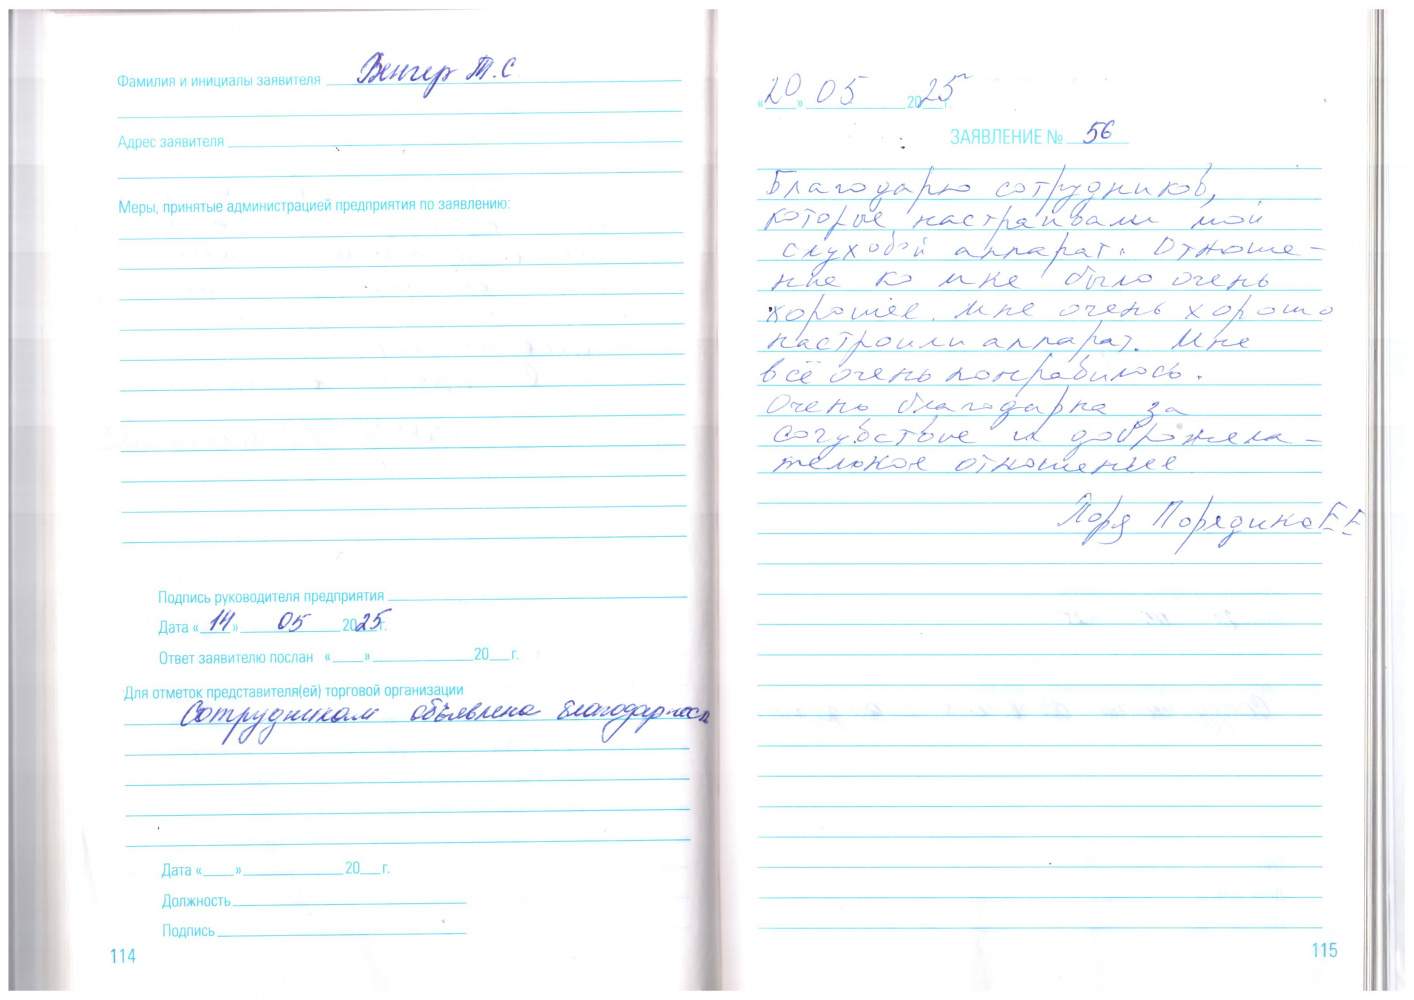 Фамилия и инициалы заявителя Венгер Т.С
Адрес заявителя
Меры, принятые администрацией предприятия по заявлению:
Подпись руководителя предприятия
Дата «14» 05 2025г.
Ответ заявителю послан «___» 20__г.
Для отметок представителя(ей) торговой организации
Сотрудникам объявлена благодарность
Дата «___» 20__г.
Должность
Подпись
114
«20» 05 2025г.
ЗАЯВЛЕНИЕ № 56
Благодарю сотрудников,
которые настраивали мой
слуховой аппарат. Отноше-
ние ко мне было очень
хорошее. Мне очень хорошо
настроили аппарат. Мне
всё очень понравилось.
Очень благодарна за
сочувствие и доброжела-
тельное отношение
Порядина Е Е
115